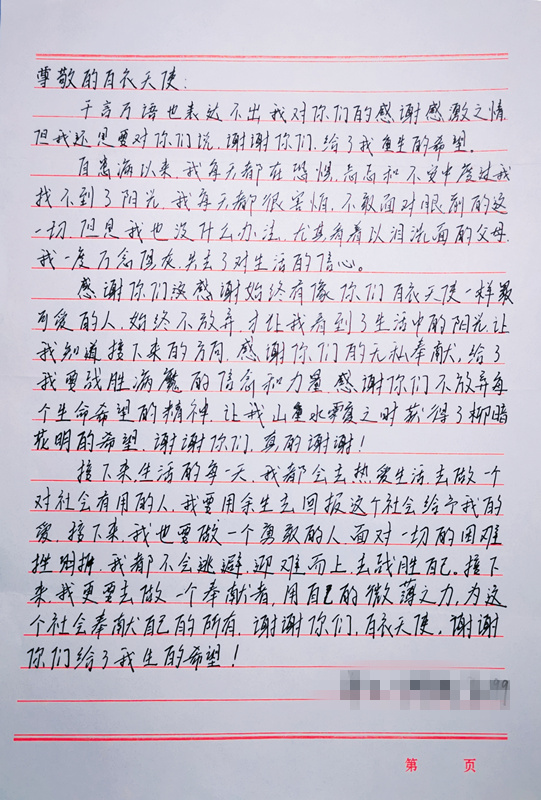 尊敬的白衣天使：
千言万语也表达不出我对你们的感谢感激之情,
但我还是要对你们说,谢谢你们,给了我重生的希望。
自患病以来,我每天都在恐惧,忐忑和不安中度过我
找不到了阳光,我每天都很害怕,不敢面对眼前的这
一切,但是我也没什么办法,尤其看着以泪洗面的父母,
我一度万念俱灰,失去了对生活的信心。
感谢你们该感谢始终有像你们白衣天使一样最
可爱的人,始终不放弃,才让我看到了生活中的阳光,让
我知道接下来的方向,感谢你们的无私奉献,给了
我要战胜病魔的信念和力量,感谢你们不放弃每
个生命希望的精神,让我山重水复之时获得了柳暗
花明的希望,谢谢你们,真的谢谢!
接下来,生活的每一天,我都会去热爱生活,去做一个
对社会有用的人,我要用余生去回报这个社会给予我的
爱,接下来,我也要做一个勇敢的人,面对一切的困难
挫折,我都不会逃避,迎难而上,去战胜自己。接下
来,我更要去做一个奉献者,用自己的微薄之力,为这
个社会奉献自己的所有,谢谢你们,白衣天使,谢谢
你们给了我生的希望!
第 页